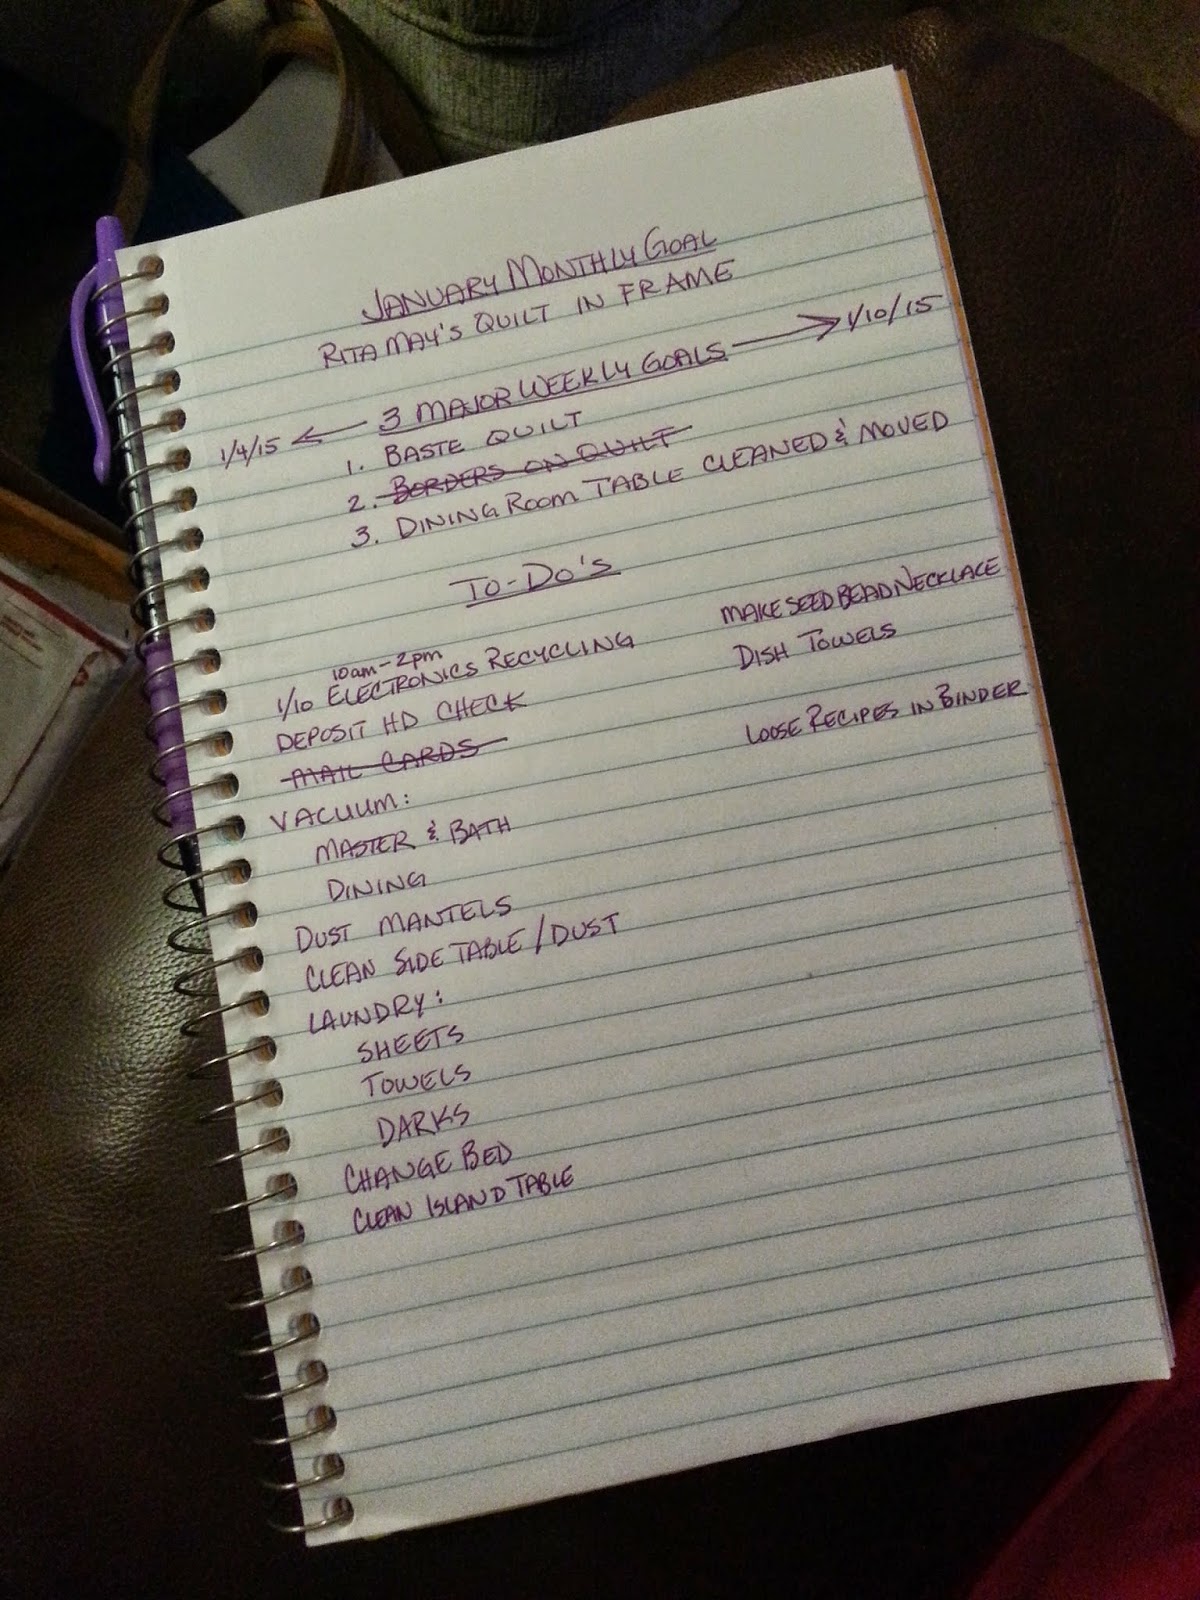 JANUARY MONTHLY GOAL
RITA MAY'S QUILT IN FRAME
1/4/15 ← 3 MAJOR WEEKLY GOALS → 1/10/15
1. BASTE QUILT
2. BORDERS ON QUILT
3. DINING ROOM TABLE CLEANED & MOVED
TO-DO'S
10am-2pm
1/10 ELECTRONICS RECYCLING
DEPOSIT HD CHECK
MAIL CARDS
VACUUM:
MASTER & BATH
DINING
DUST MANTELS
CLEAN SIDE TABLE/DUST
LAUNDRY:
SHEETS
TOWELS
DARKS
CHANGE BED
CLEAN ISLAND TABLE
MAKE SEED BEAD NECKLACE
DISH TOWELS
LOOSE RECIPES IN BINDER